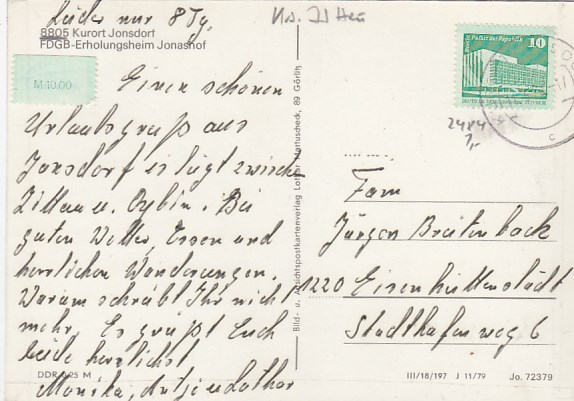 Leider nur 8 Tg.
8805 Kurort Jonsdorf
FDGB-Erholungsheim Jonashof
M 10.00
Einen schönen
Urlaubsgruß aus
Jonsdorf es liegt zwische
Zittau u. Oybin. Bei
guten Wetter, Essen und
herrlichen Wanderungen.
Warum schreibt Ihr nicht
mehr. Es grüßt Euch
beide herzlichst
Monika, Antje u Lothar
DDR 0,25 M
Bild- u. Ansichtspostkartenverlag Lothar Martuscheck, 89 Görlitz
Palast der Republik
10
2484
1,-
Fam
Jürgen Breitenbach
1220 Eisenhüttenstadt
Stadthafenweg 6
III/18/197 J 11/79 Jo. 72379